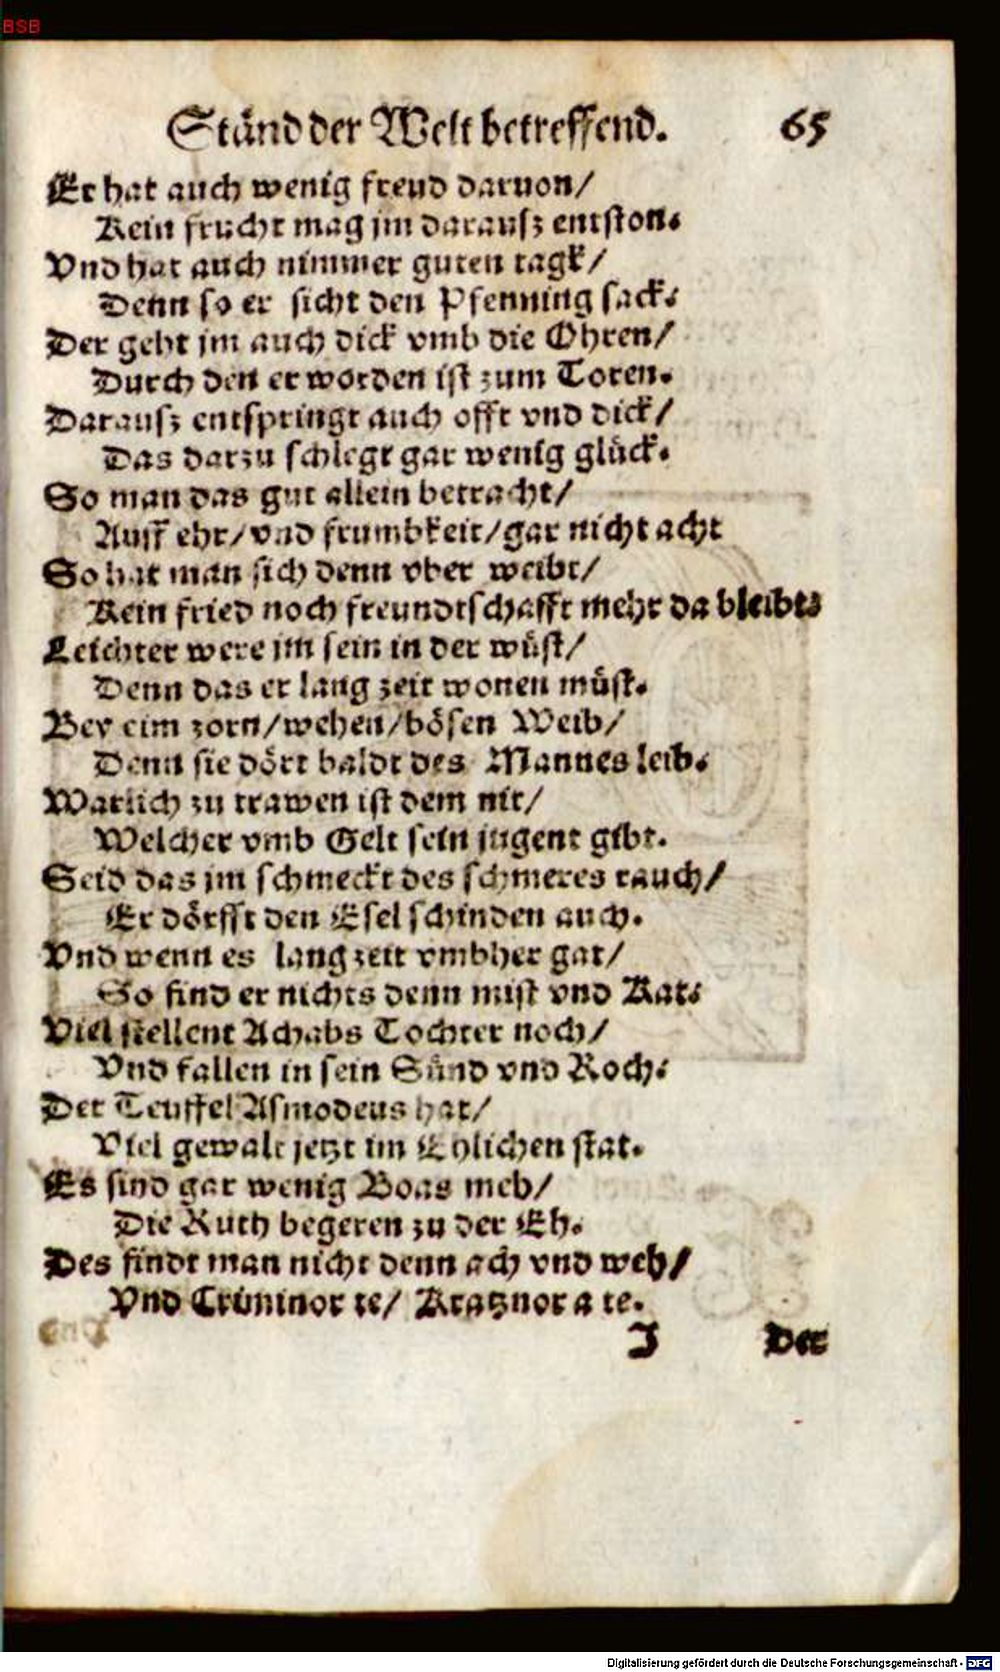 BSB
Stånd der Welt betreffend. 65
Er hat auch wenig freud daruon/
Kein frucht mag jm darausz entston.
Vnd hat auch nimmer guten tagk/
Denn so er sicht den Pfenning sack.
Der geht jm auch dick vmb die Ohren/
Durch den er worden ist zum Toren.
Darausz entspringt auch offt vnd dick/
Das darzu schlegt gar wenig glück.
So man das gut allein betracht/
Auff ehr/vnd frumbkeit/gar nicht acht
So hat man sich denn vber weibt/
Kein fried noch freundtschafft mehr da bleibt.
Leichter were im sein in der wůst/
Denn das er lang zeit wonen můst.
Bey eim zorn/wehen/bösen Weib/
Denn sie dört baldt des Mannes leib.
Warlich zu trawen ist dem nit/
Welcher vmb Gelt sein jugent gibt.
Seid das jm schmeckt des schmeres rauch/
Er dörfft den Esel schinden auch.
Vnd wenn es lang zeit vmbher gat/
So find er nichts denn mist vnd Kat.
Viel stellent Achabs Tochter noch/
Vnd fallen in sein Sünd vnd Roch.
Der Teuffel Asmodeus hat/
Viel gewalt jetzt im Ehlichen stat.
Es sind gar wenig Boas meh/
Die Ruth begeren zu der Eh.
Des findt man nicht denn ach vnd weh/
Vnd Criminor te/ Kratznor a te.
J Der
Digitalisierung gefördert durch die Deutsche Forschungsgemeinschaft - DFG